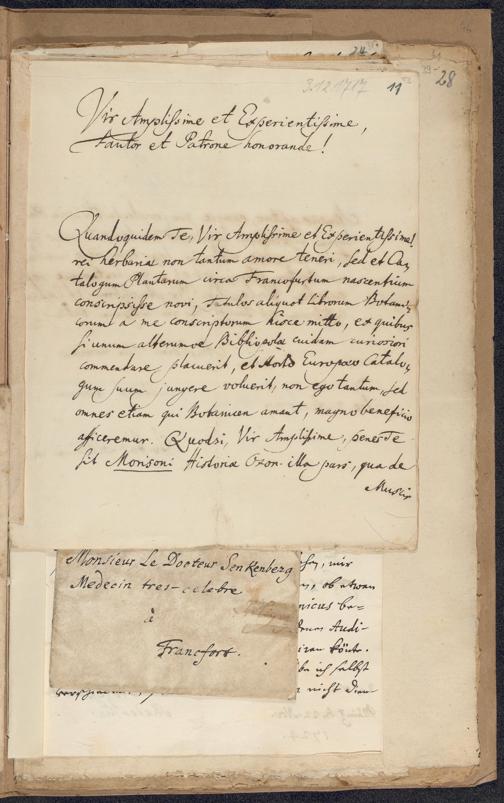 24
3.12.1717 11
29
28
Vir Amplissime et Experientissime,
Fautor et Patrone honorande!
Quandoquidem Te, Vir Amplissime et Experientissime!
rei herbariæ non tantum amore teneri, sed et Ca-
talogum Plantarum circa Francofurtum nascentium
conscripsisse novi, titulos aliquot librorum Botani-
corum a me conscriptorum hisce mitto, ex quibus
si unum alterumve Bibliopolæ cuidam curiosiori
commendare placuerit, et Horto Europæo Catalo-
gum suum jungere voluerit, non ego tantum, sed
omnes etiam qui Botanicen amant, magno beneficio
afficeremur. Quodsi, Vir Amplissime, penes Te
sit Morisoni Historiæ Oxon. illa pars, qua de
Muscis
Monsieur Le Docteur Senkenberg
Medecin tres-celebre
à
Francfort.
mir
ob etwan
nicus be-
Audi-
könte.
ich selbst
nicht
1724.